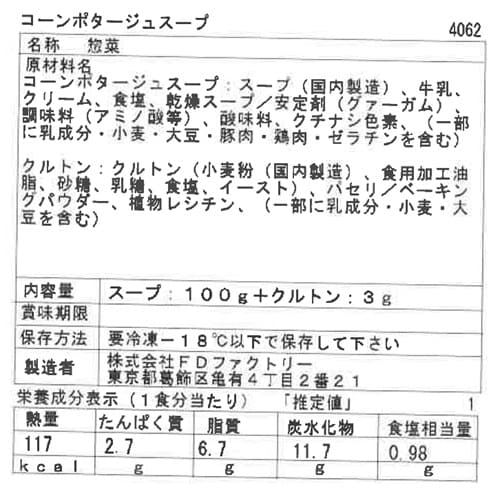 コーンポタージュスープ 4062
名称 惣菜
原材料名
コーンポタージュスープ：スープ（国内製造）、牛乳、
クリーム、食塩、乾燥スープ／安定剤（グァーガム）、
調味料（アミノ酸等）、酸味料、クチナシ色素、（一部
に乳成分・小麦・大豆・豚肉・鶏肉・ゼラチンを含む）
クルトン：クルトン（小麦粉（国内製造）、食用加工油
脂、砂糖、乳糖、食塩、イースト）、パセリ／ベーキン
グパウダー、植物レシチン、（一部に乳成分・小麦・大
豆を含む）
内容量 スープ：１００ｇ＋クルトン：３ｇ
賞味期限
保存方法 要冷凍－１８℃以下で保存して下さい
製造者 株式会社ＦＤファクトリー
東京都葛飾区亀有４丁目２番２１
栄養成分表示（１食分当たり） 「推定値」 1
熱量 たんぱく質 脂質 炭水化物 食塩相当量
117 2.7 6.7 11.7 0.98
ｋｃａｌ ｇ ｇ ｇ ｇ